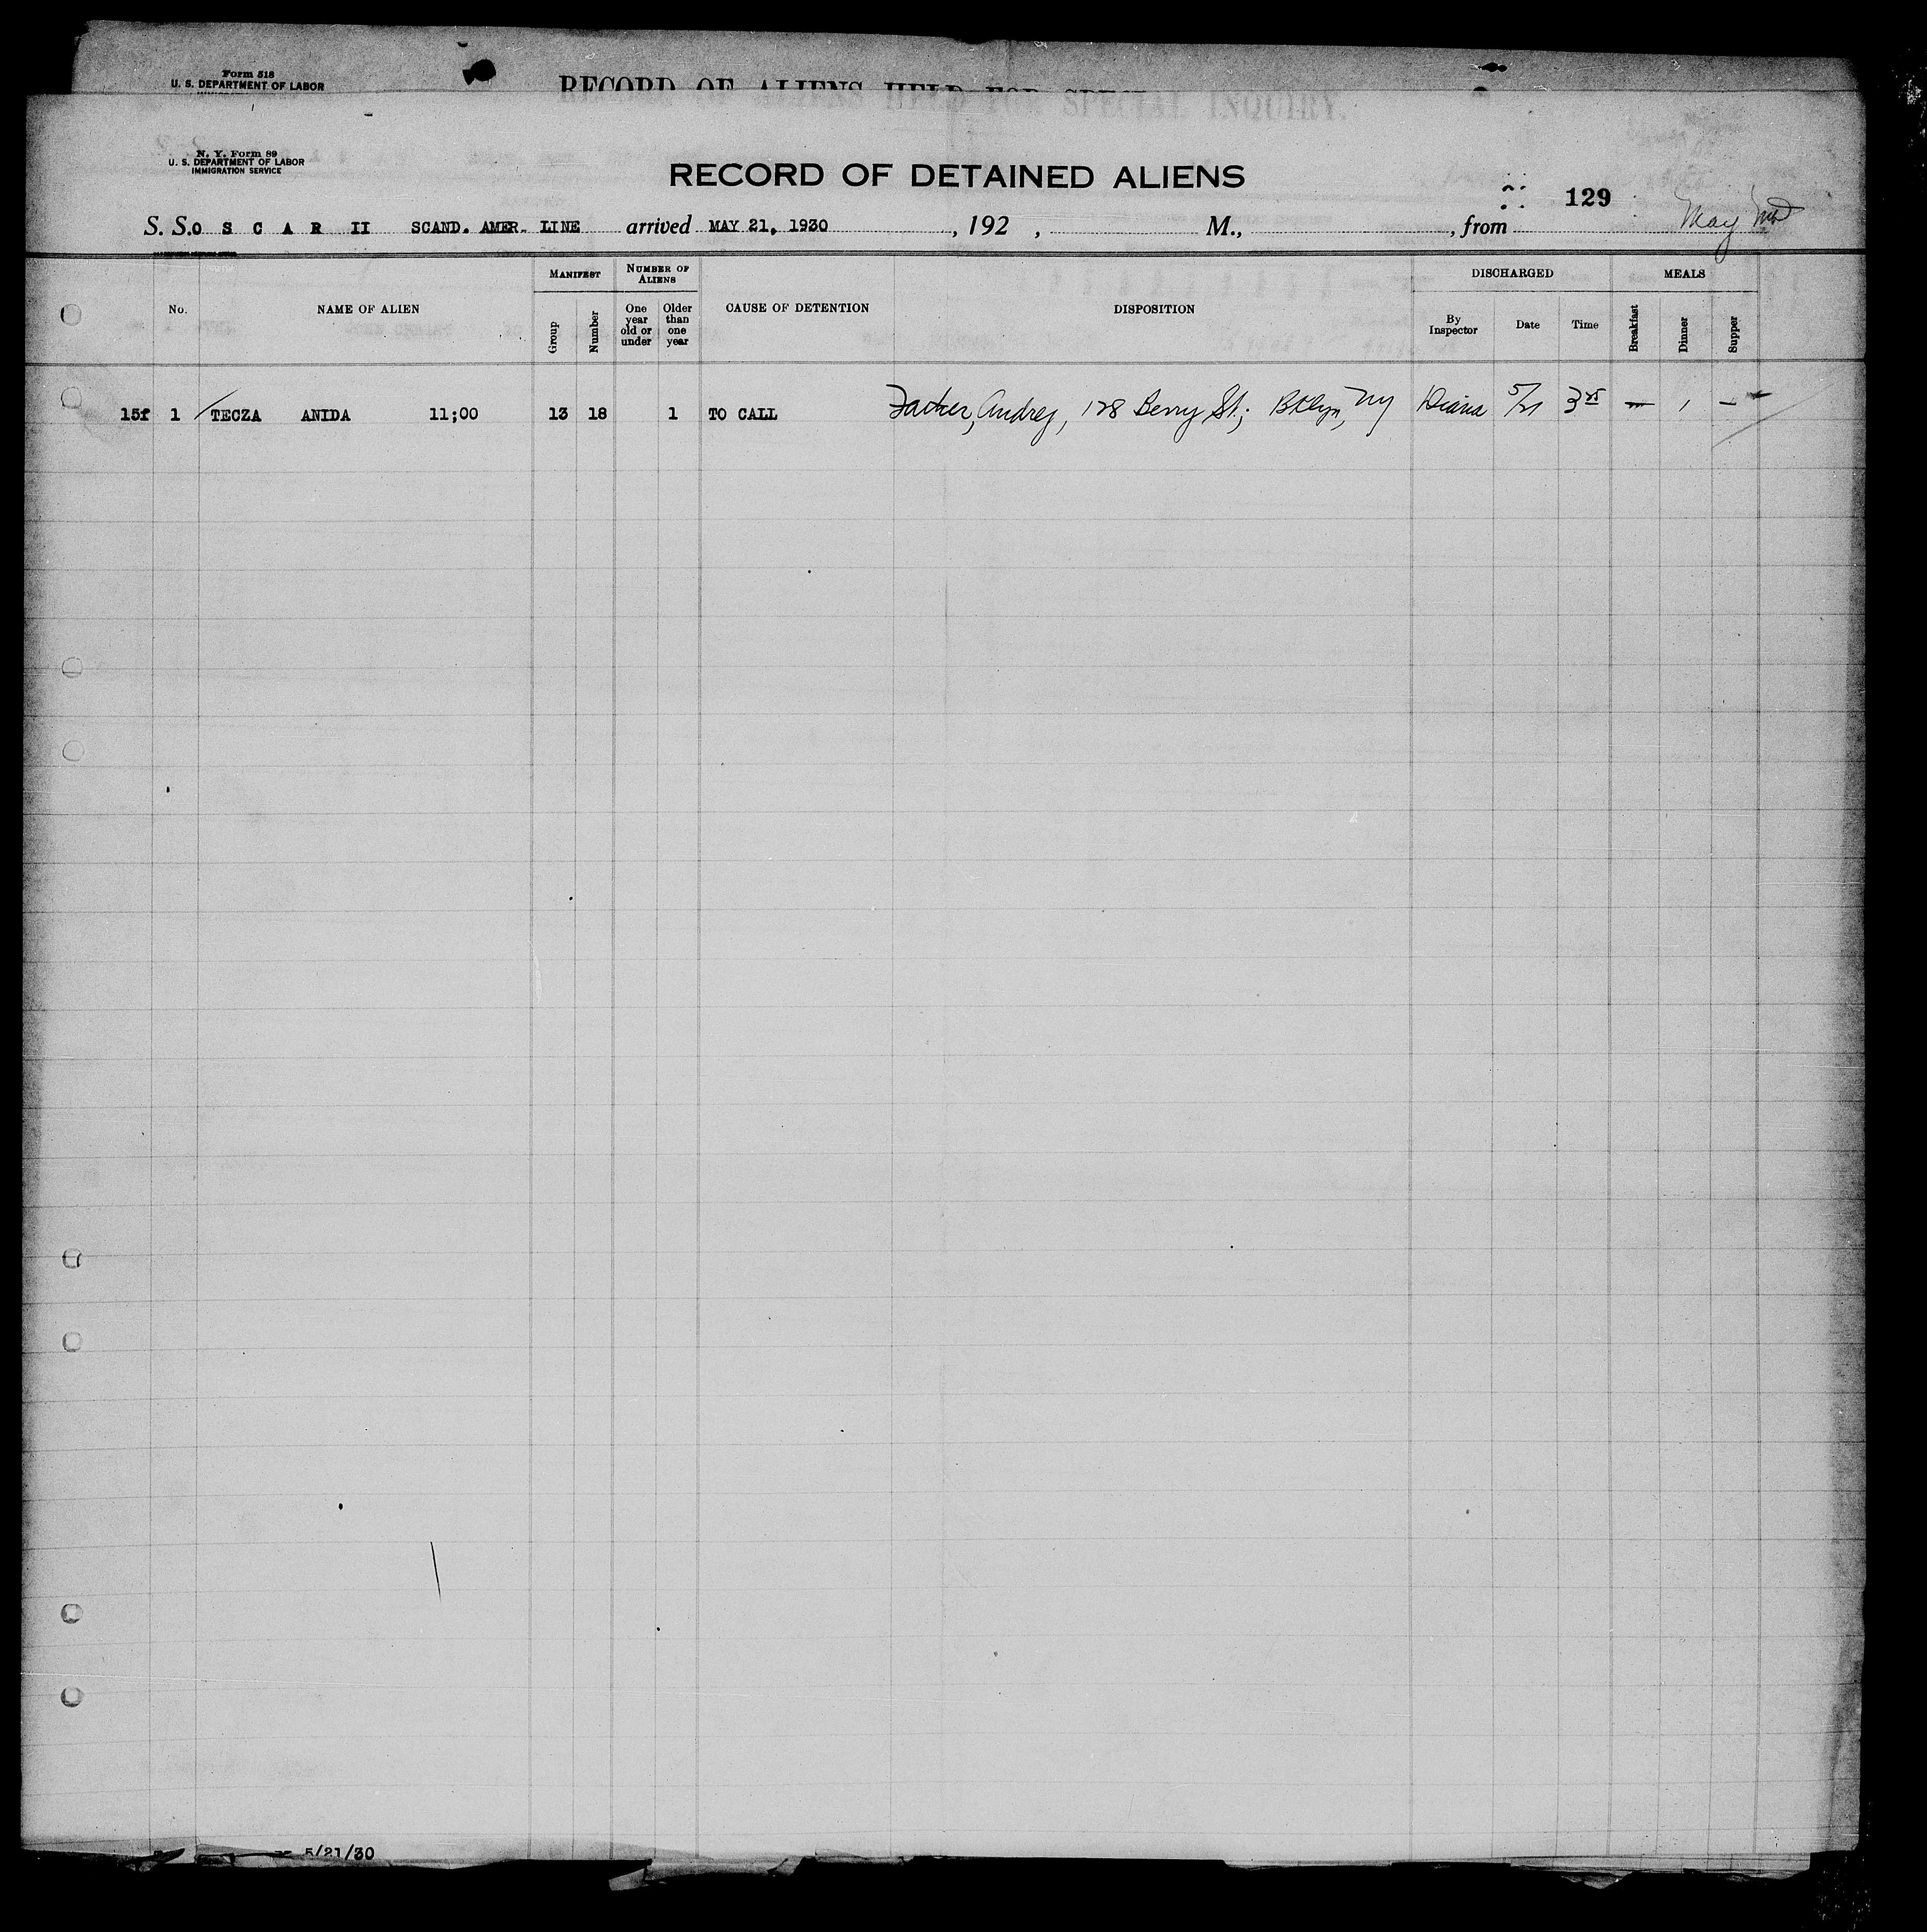 Form 518
U. S. DEPARTMENT OF LABOR
RECORD OF ALIENS HELD FOR SPECIAL INQUIRY.
N. Y. Form 89
U. S. DEPARTMENT OF LABOR
IMMIGRATION SERVICE
RECORD OF DETAINED ALIENS
129
S. S. O S C A R II SCAND. AMER. LINE arrived MAY 21, 1930 , 192 , M., , from May
No.
NAME OF ALIEN
MANIFEST
Group
Number
NUMBER OF ALIENS
One year old or under
Older than one year
CAUSE OF DETENTION
DISPOSITION
DISCHARGED
By Inspector
Date
Time
MEALS
Breakfast
Dinner
Supper
15f 1 / TECZA ANIDA 11;00 13 18 1 TO CALL Father, Andrej, 128 Berry St.; Bklyn, NY Diana 5/21 3 25 — 1 —
5/21/30